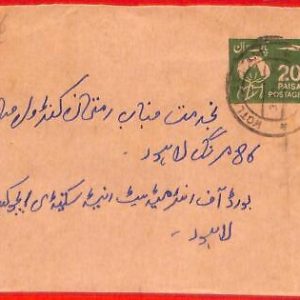 پاکستان
20
PAISA
POSTAGE
KOTL
بخدمت جناب رمضان کنٹرولر
86 مزنگ لاہور -
بورڈ آف انٹرمیڈیٹ اینڈ سیکنڈری ایجوکی
لاہور -